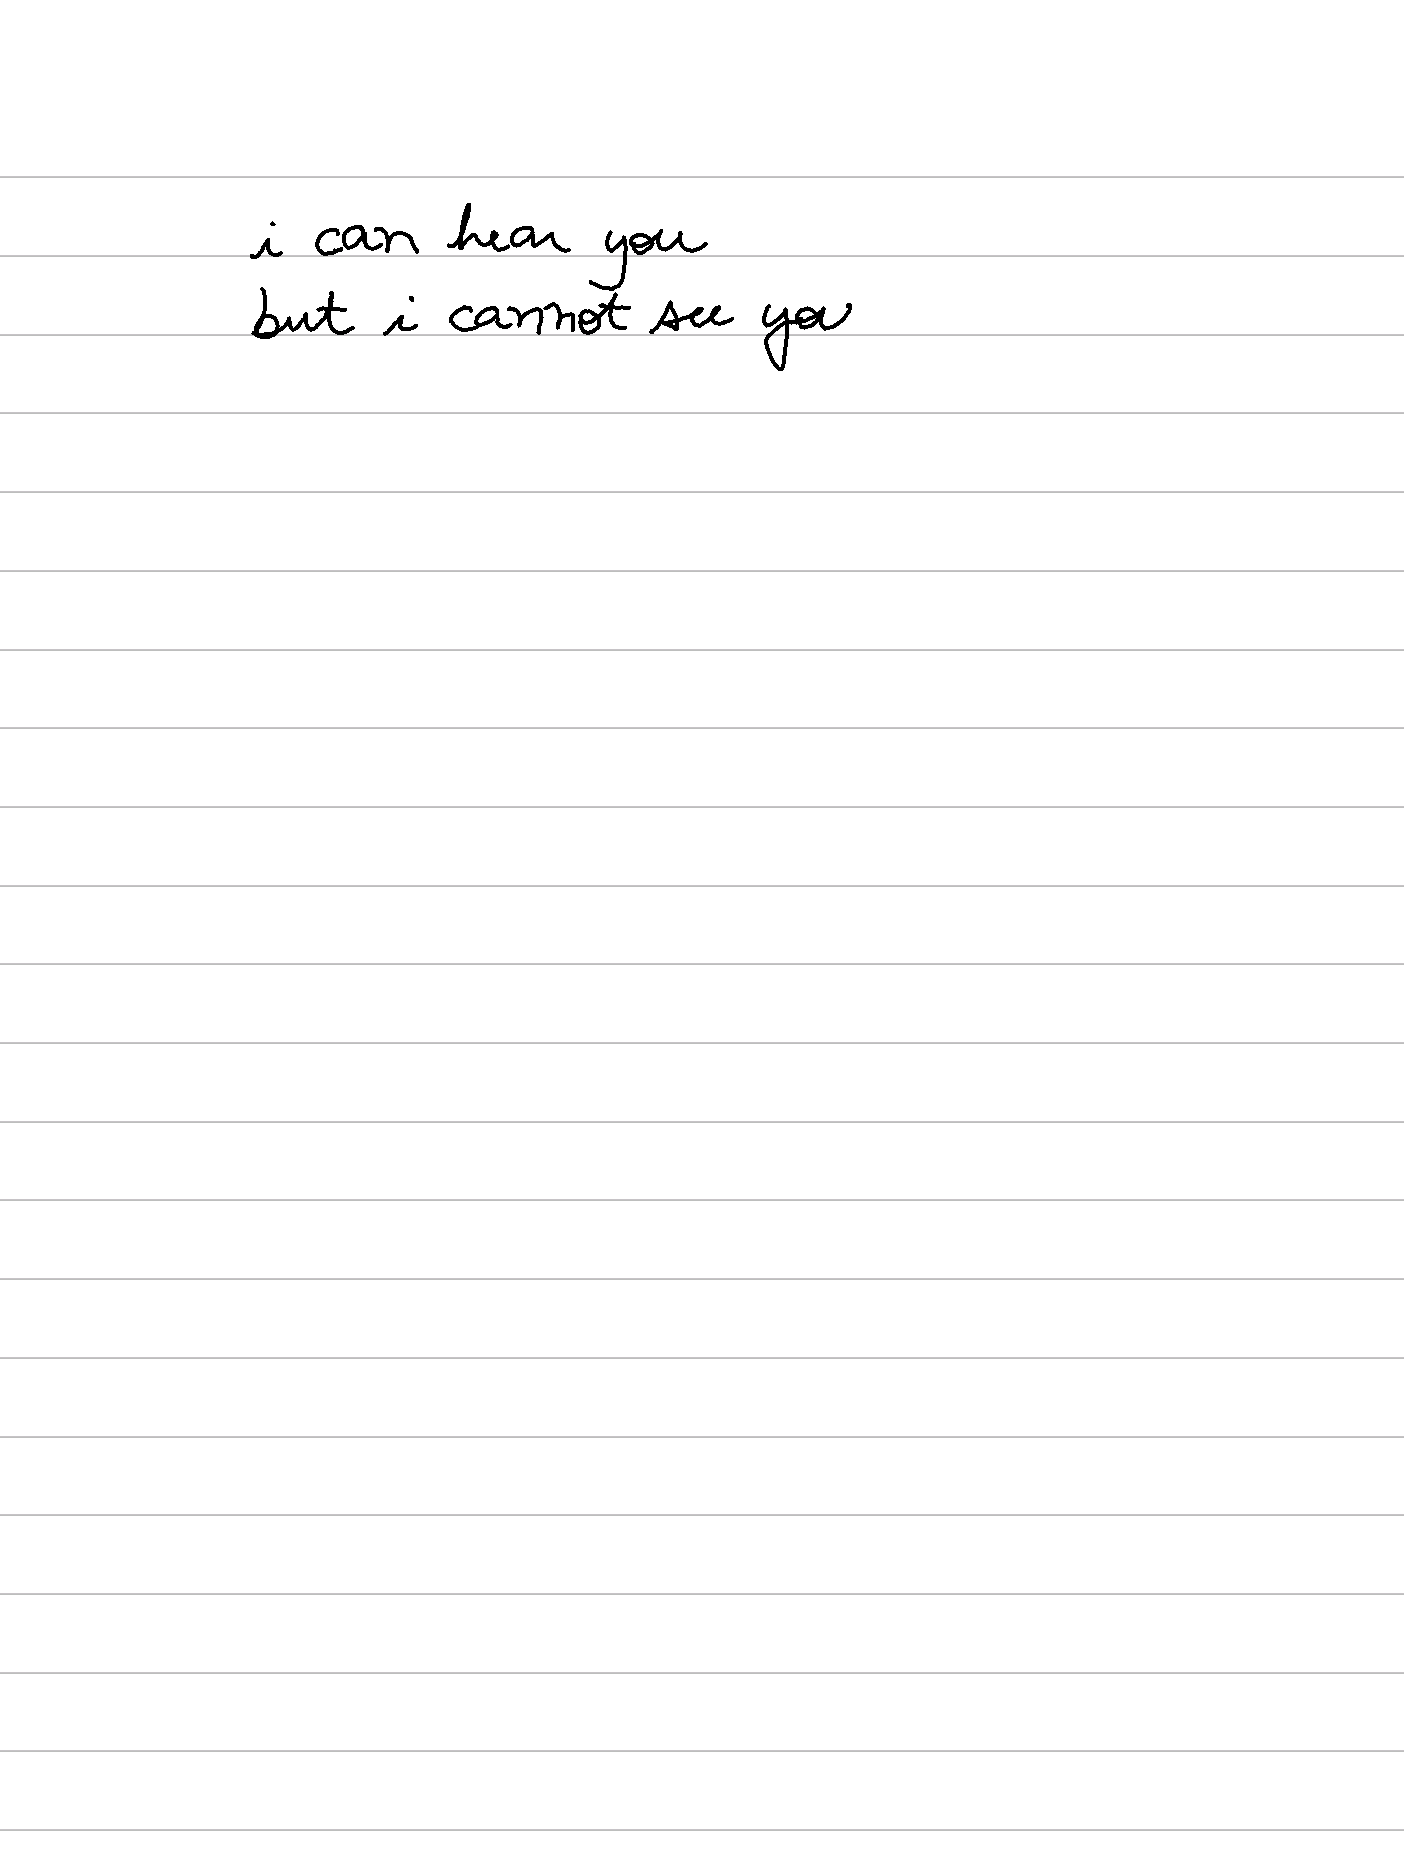 i can hear you
but i cannot see you